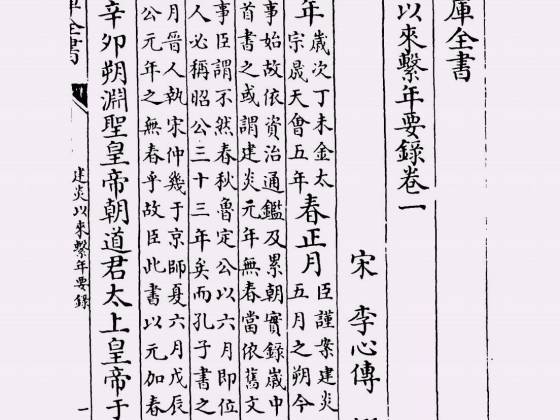 庫全書
以來繫年要錄卷一
宋 李心傳
年歲次丁未金太宗晟天會五年春正月臣謹案建炎五月之朔今
事始故依資治通鑑及累朝實錄歲中
首書之或謂建炎元年無春當依舊文
事臣謂不然春秋魯定公以六月即位
人必稱昭公三十三年矣而孔子書之
月晉人執宋仲幾于京師夏六月戊辰
公元年之無春乎故臣此書以元加春
辛卯朔淵聖皇帝朝道君太上皇帝于
庫全書
建炎以來繫年要錄
一